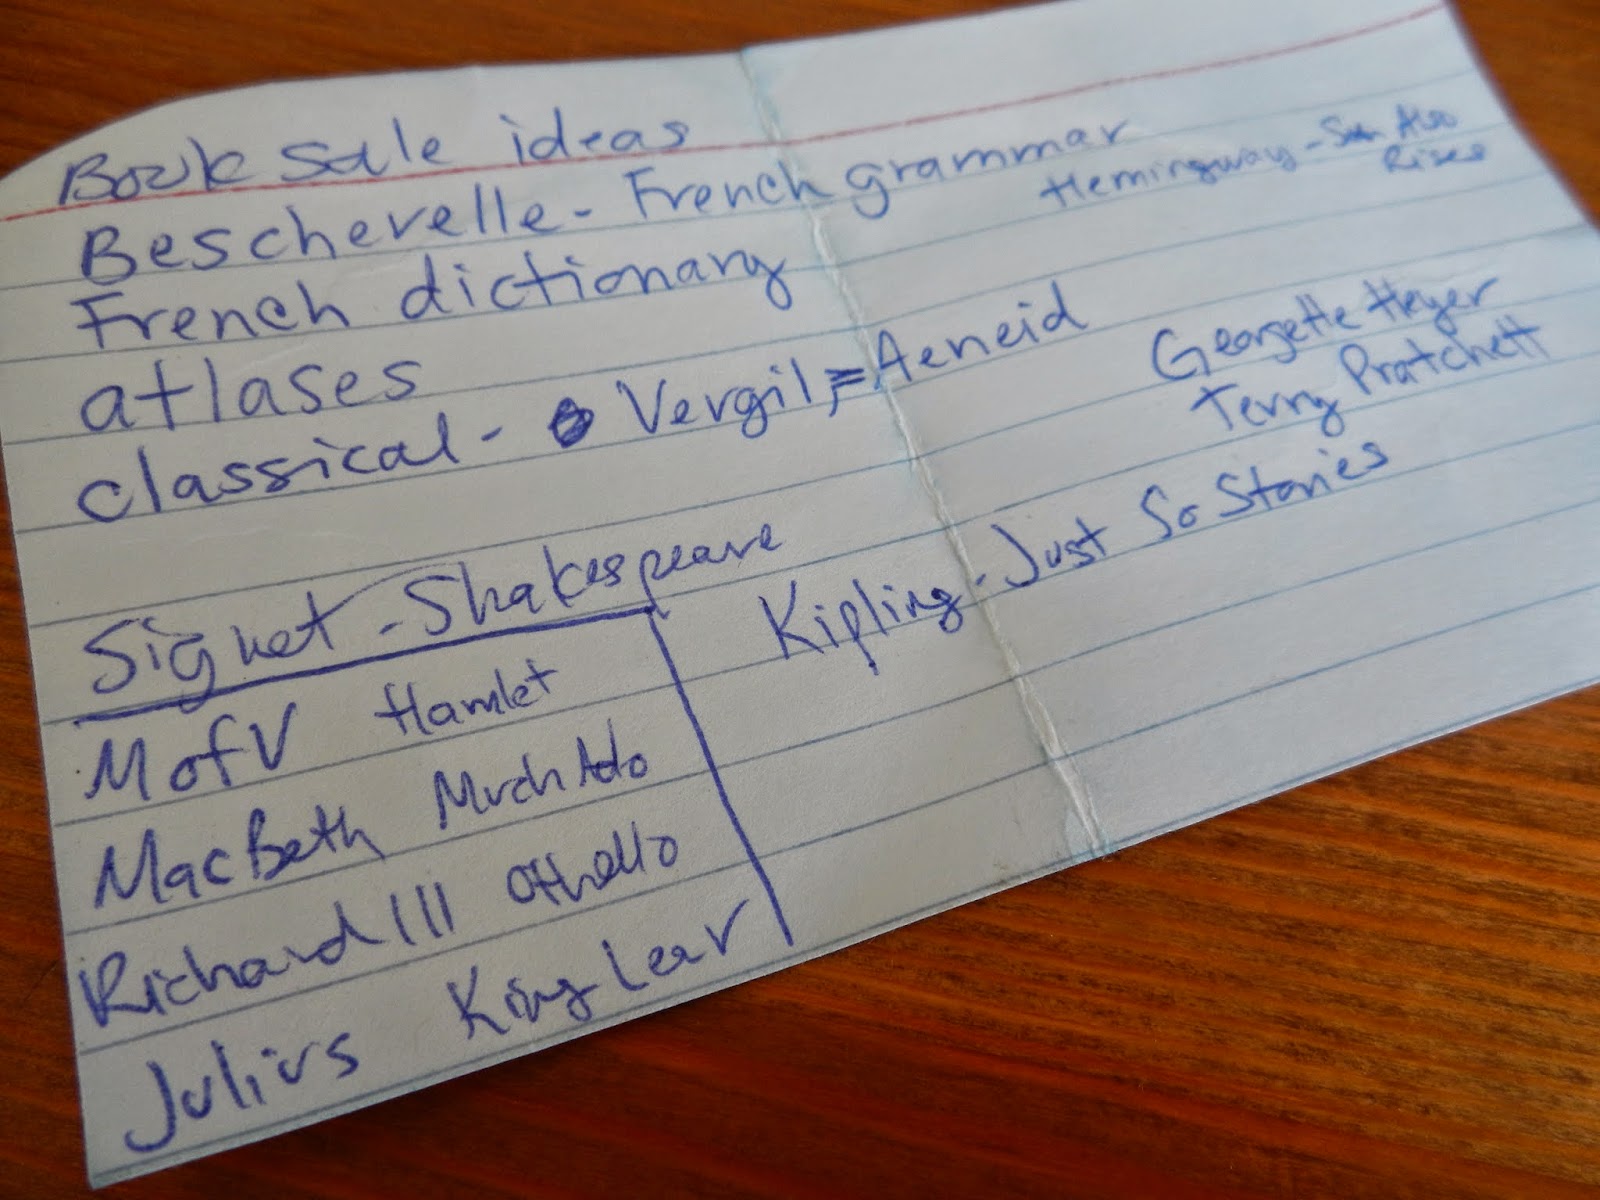 Book sale ideas
Beschevelle - French grammar
Hemingway - Sun Also
Rises
French dictionary
atlases
classical - Vergil, - Aeneid
Georgette Heyer
Terry Pratchett
Signet - Shakespeare
Kipling - Just So Stories
M of V Hamlet
MacBeth Much Ado
Richard III Othello
Julius King Lear